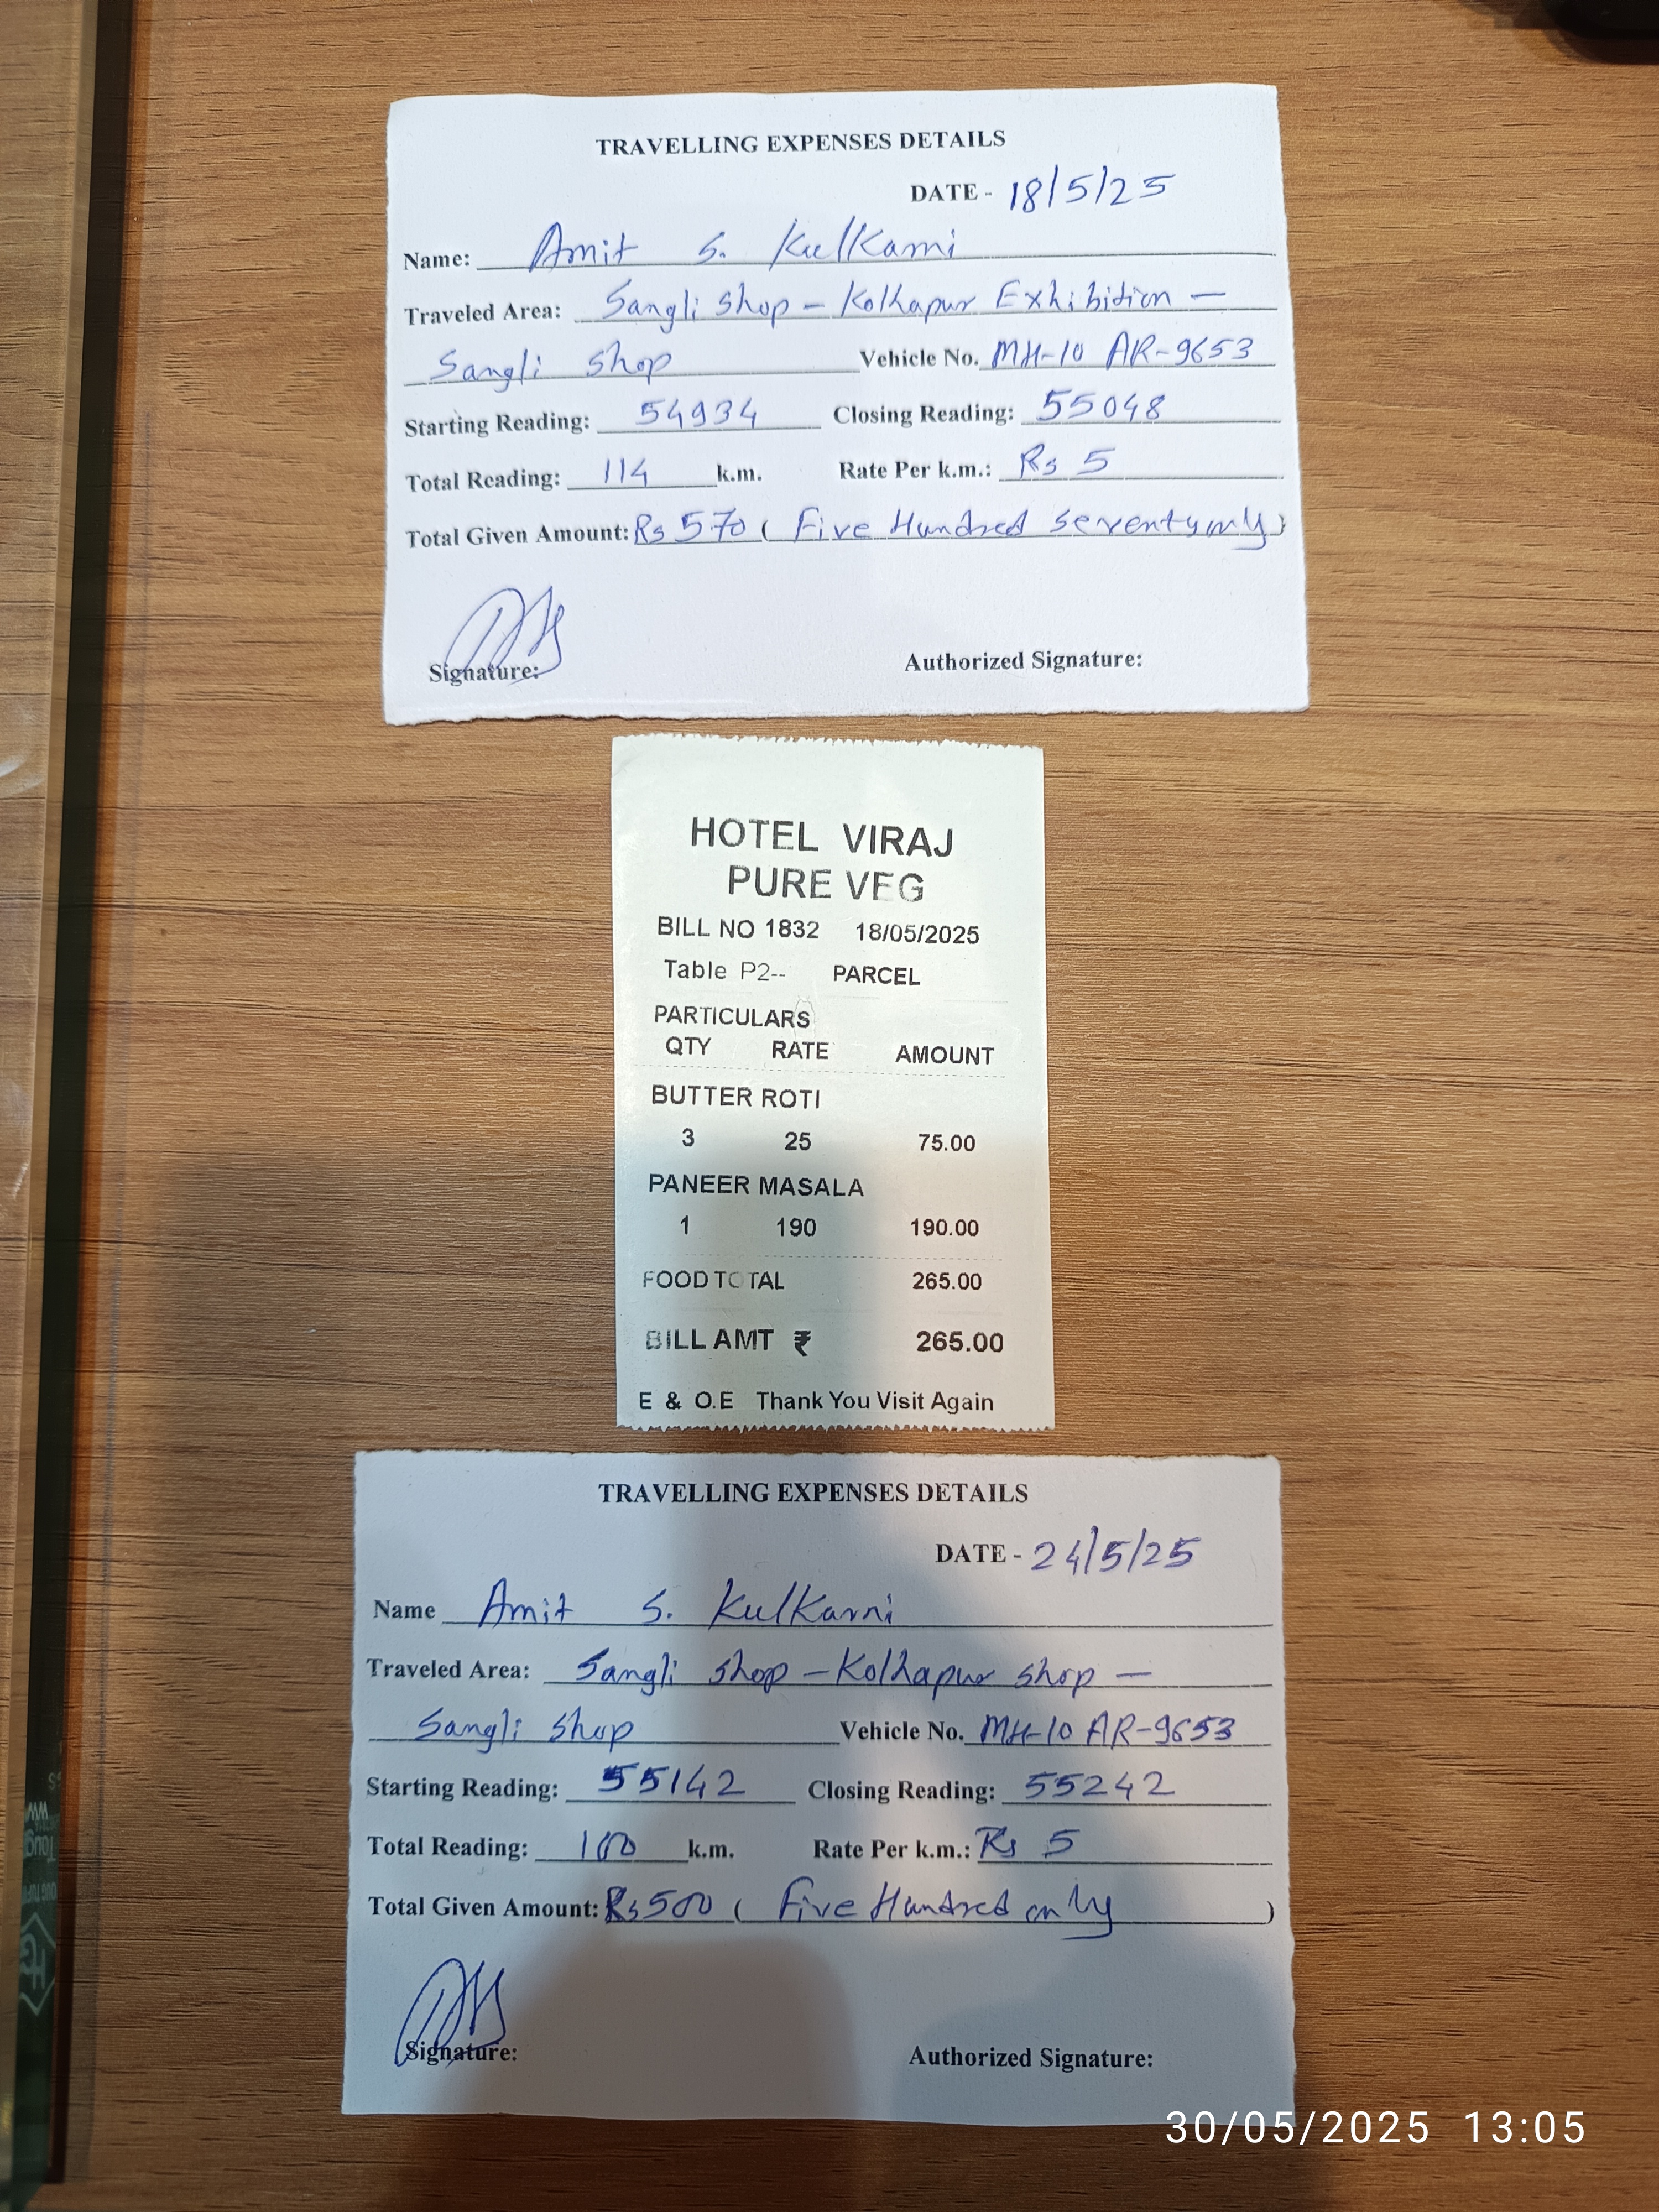 TRAVELLING EXPENSES DETAILS
DATE - 18/5/25
Name: Amit S. Kulkarni
Traveled Area: Sangli shop - Kolhapur Exhibition -
Sangli shop Vehicle No. MH-10 AR-9653
Starting Reading: 54934 Closing Reading: 55048
Total Reading: 114 k.m. Rate Per k.m.: Rs 5
Total Given Amount: Rs 570 ( Five Hundred seventy only )
Signature: Authorized Signature:
HOTEL VIRAJ
PURE VEG
BILL NO 1832 18/05/2025
Table P2-- PARCEL
PARTICULARS
QTY RATE AMOUNT
BUTTER ROTI
3 25 75.00
PANEER MASALA
1 190 190.00
FOOD TOTAL 265.00
BILL AMT ₹ 265.00
E & O.E Thank You Visit Again
TRAVELLING EXPENSES DETAILS
DATE - 24/5/25
Name Amit S. Kulkarni
Traveled Area: Sangli shop - Kolhapur shop -
Sangli shop Vehicle No. MH-10 AR-9653
Starting Reading: 55142 Closing Reading: 55242
Total Reading: 100 k.m. Rate Per k.m.: Rs 5
Total Given Amount: Rs 500 ( Five Hundred only )
Signature: Authorized Signature:
30/05/2025 13:05